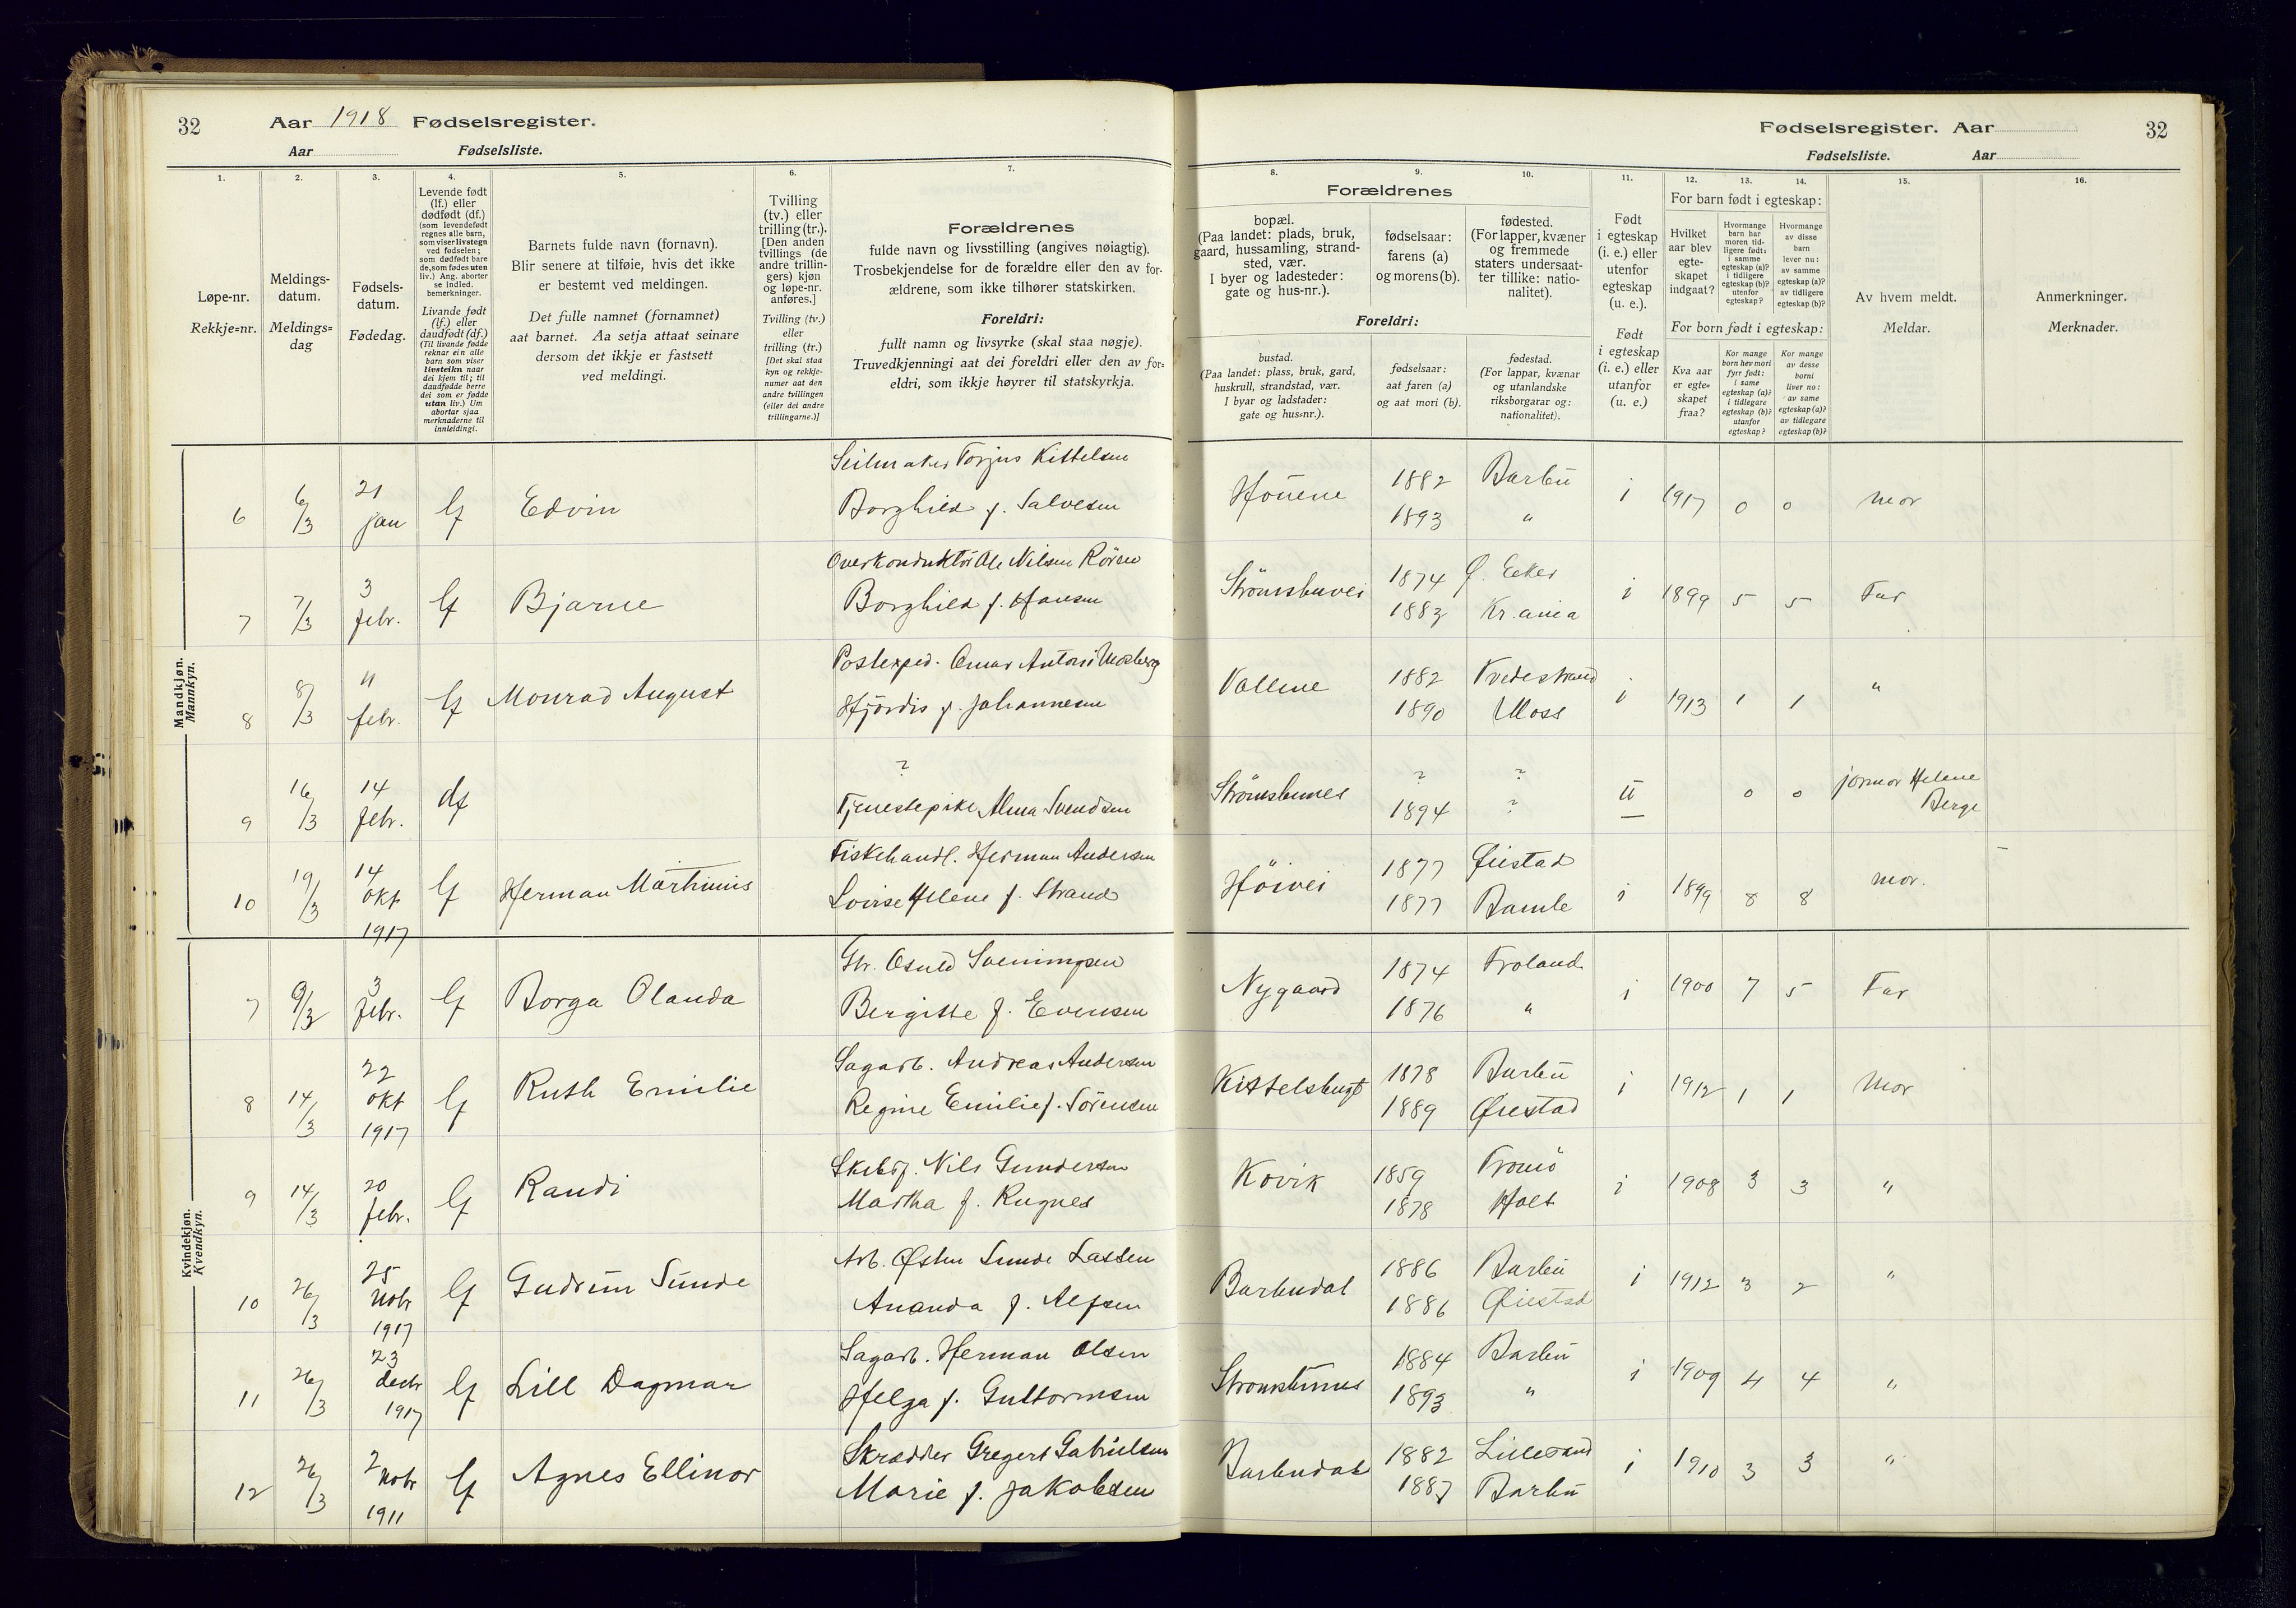 32 Aar 1918 Fødselsregister.
Aar Fødselsliste.
Fødselsregister. Aar 32
Fødselsliste. Aar
1. 2. 3. 4. 5. 6. 7. 8. 9. 10. 11. 12. 13. 14. 15. 16.
Løpe-nr.
Rekkje=nr.
Meldings-
datum.
Meldings=
dag
Fødsels-
datum.
Fødedag.
Levende født
(lf.) eller
dødfødt (df.)
(som levendefødt
regnes alle barn,
som viser livstegn
ved fødselen;
som dødfødt bare
de, som fødes uten
liv.) Ang. aborter
se indled.
bemerkninger.
Livande født
(lf.) eller
daudfødt (df.)
(Til livande fødde
reknar ein alle
barn som viser
livsteikn naar
dei kjem til; til
daudfødde berre
dei som er fødde
utan liv.) Um
abortar sjaa
merknaderne til
innleidingi.
Barnets fulde navn (fornavn).
Blir senere at tilføie, hvis det ikke
er bestemt ved meldingen.
Det fulle namnet (fornamnet)
aat barnet. Aa setja attaat seinare
dersom det ikkje er fastsett
ved meldingi.
Tvilling
(tv.) eller
trilling (tr.).
[Den anden
tvillings (de
andre trillin-
gers) kjøn
og løpe-nr.
anføres.]
Tvilling (tv.)
eller
trilling (tr.)
[Det skal staa
kyn og rekkje-
numer aat den
andre tvillingen
(eller dei andre
trillingarne.)]
Forældrenes
fulde navn og livsstilling (angives nøiagtig).
Trosbekjendelse for de forældre eller den av for-
ældrene, som ikke tilhører statskirken.
Foreldri:
fullt namn og livsyrke (skal staa nøgje).
Truvedkjenningi aat dei foreldri eller den av for=
eldri, som ikkje høyrer til statskyrkja.
Forældrenes
bopæl.
(Paa landet: plads, bruk,
gaard, hussamling, strand-
sted, vær.
I byer og ladesteder:
gate og hus-nr.).
fødselsaar:
farens (a)
og morens (b).
fødested.
(For lapper, kvæner
og fremmede
staters undersaat-
ter tillike: natio-
nalitet).
Foreldri:
bustad.
(Paa landet: plass, bruk, gard,
huskrull, strandstad, vær.
I byar og ladstader:
gate og hus=nr.).
fødselsaar:
aat faren (a)
og aat mori (b).
fødestad.
(For lappar, kvænar
og utanlandske
riksborgarar og:
nationalitet).
Født
i egteskap
(i. e.) eller
utenfor
egteskap
(u. e.).
Født
i egteskap
(i. e.) eller
utanfor
(u. e.)
For barn født i egteskap:
Hvilket
aar blev
egte-
skapet
indgaat?
Hvormange
barn har
moren tid-
ligere født:
i samme
egteskap (a)?
i tidligere
egteskap (b)?
utenfor
egteskap?
Hvormange
av disse
barn
lever nu:
av samme
egteskap (a)?
av tidligere
egteskap (b)?
For born født i egteskap:
Kva aar
er egte=
skapet
fraa?
Kor mange
born hev mori
fyrr født:
i same
egteskap (a)?
i tidlegare
egteskap (b)?
utanfor
egteskap?
Kor mange
av desse
borni
liver no:
av same
egteskap (a)?
av tidlegare
egteskap (b)?
Av hvem meldt.
Meldar.
Anmerkninger.
Merknader.
Mandkjøn.
Mannkyn.
Seilmaker Torjus Kittelsen 1882 Barbu
6 6/3 21 jan lf Edvin Borghild f. Salvesen Houene 1893 " i 1917 0 0 mor
Overkonduktör Ole Nilsen Rörsen 1874 Ø. Eeker
7 7/3 3 febr. lf Bjarne Borghild f. Hansen Strömsbuvei 1883 Kr.ania i 1899 5 5 Far
Postexped. Omar Antoni Mosberg 1882 Tvedestrand
8 8/3 11 febr. lf Monrad August Hjördis f. Johannesen Vollene 1890 Moss i 1913 1 1 "
? ? ?
9 16/3 14 febr. df Tjenestepike Alma Svendsen Strömsbunes 1894 ? u 0 0 jormor Helene
Berge
Fiskehandl. Herman Andersen 1877 Øiestad
10 19/3 14 okt 1917 lf Herman Martinius Lovise Helene f. Strand Höivei 1877 Bamle i 1899 8 8 mor.
Kvindekjøn.
Kvendkyn.
Gbr. Osuld Sveningsen 1874 Froland
7 9/3 3 febr. lf Borga Olanda Bergitte f. Evensen Nygaard 1876 " i 1900 7 5 Far
Sagarb. Andreas Andersen 1878 Barbu
8 14/3 22 okt 1917 lf Ruth Emilie Regine Emilie f. Sörensen Kittelsbugt 1889 Øiestad i 1912 1 1 Mor
Skibsf. Nils Gundersen 1859 Tromö
9 14/3 20 febr. lf Randi Martha f. Rugnes Kovik 1878 Holt i 1908 3 3 "
Arb. Østen Sunde Lassen 1886 Barbu
10 26/3 25 Nobr 1917 lf Gudrun Sunde Ananda f. Alfsen Barbudal 1886 Øiestad i 1912 3 2 "
Sagarb. Herman Olsen 1884 Barbu
11 26/3 23 decbr 1917 lf Lill Dagmar Helga f. Guttormsen Strömsbunes 1893 " i 1909 4 4 "
Skrædder Gregert Gabrielsen 1882 Lillesand
12 26/3 2 Nobr 1911 lf Agnes Ellinor Marie f. Jakobsen Barbudal 1887 Barbu i 1910 3 3 "